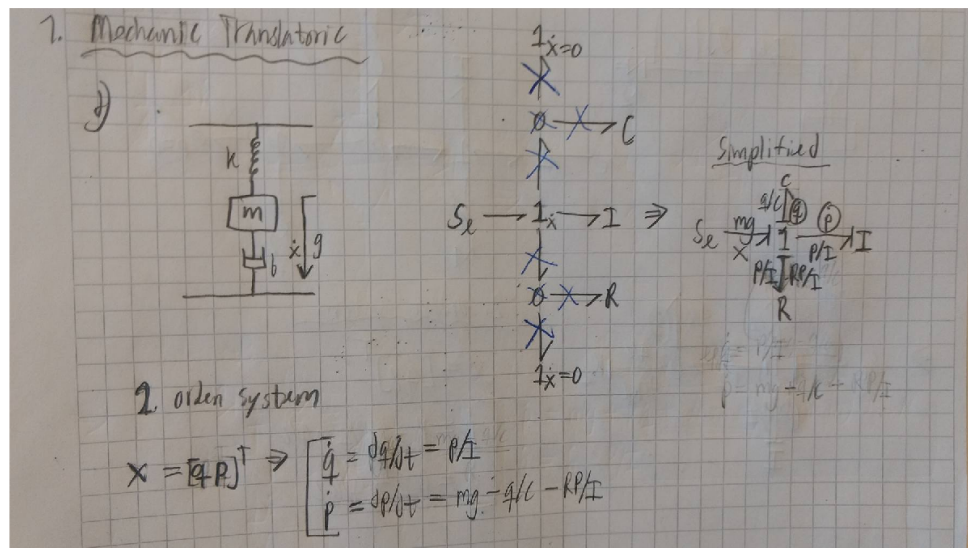 1. Mechanic Translatoric
1)
k
m
b
ẋ g
1ẋ=0
0 → C
Se → 1ẋ → I ⇒
0 → R
1ẋ=0
Simplified
C
q/C q̇
Se mg ẋ 1 ṗ P/I I
P/I RP/I
R
q̇ = P/I
ṗ = mg - q/C - RP/I
2 orden system
X = [q P]ᵀ ⇒ [ q̇ = dq/dt = P/I
ṗ = dP/dt = mg - q/C - RP/I